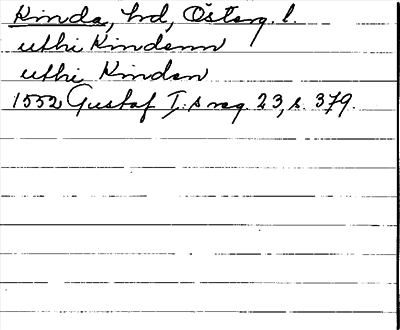 Kinda, hd, Österg. l.
uthi Kindenn
uthi Kinden
1552 Gustaf I:s reg. 23, s. 379.